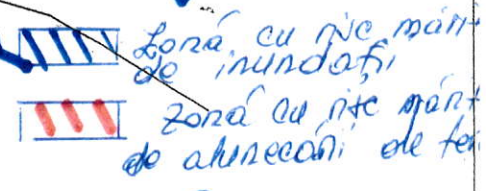 Zonă cu risc mări
de inundații
Zonă cu risc mări
de alunecări de te